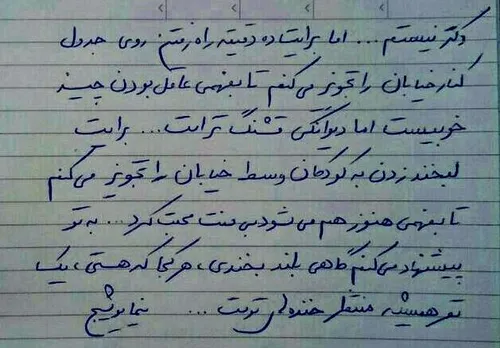 دکتر نیستم ... اما برایت ده دقیقه راه رفتن روی جدول
کنار خیابان را تجویز می کنم تا بفهمی عاقل بودن چیز
خوبیست اما دیوانگی قشنگ تر است ... برایت
لبخند زدن به کودکان وسط خیابان را تجویز می کنم
تا بفهمی هنوز هم می شود بی منت محبت کرد ... به تو
پیشنهاد می کنم گاهی بلند بخندی، هر کجا که هستی، یک
نفر همیشه منتظر خنده های توست ... نیما یوشیج